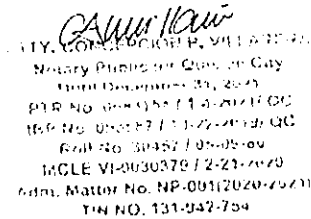 CONCEPCION P. VILLAREÑA
Notary Public for Quezon City
Until December 31, 2021
PTR No. / 1-4-2021/ QC
IBP No. QC
Roll No. 30457 / 05-09-80
MCLE VI-0030379 / 2-21-2020
Adm. Matter No. NP-001(2020-2021)
TIN NO. 131-942-754